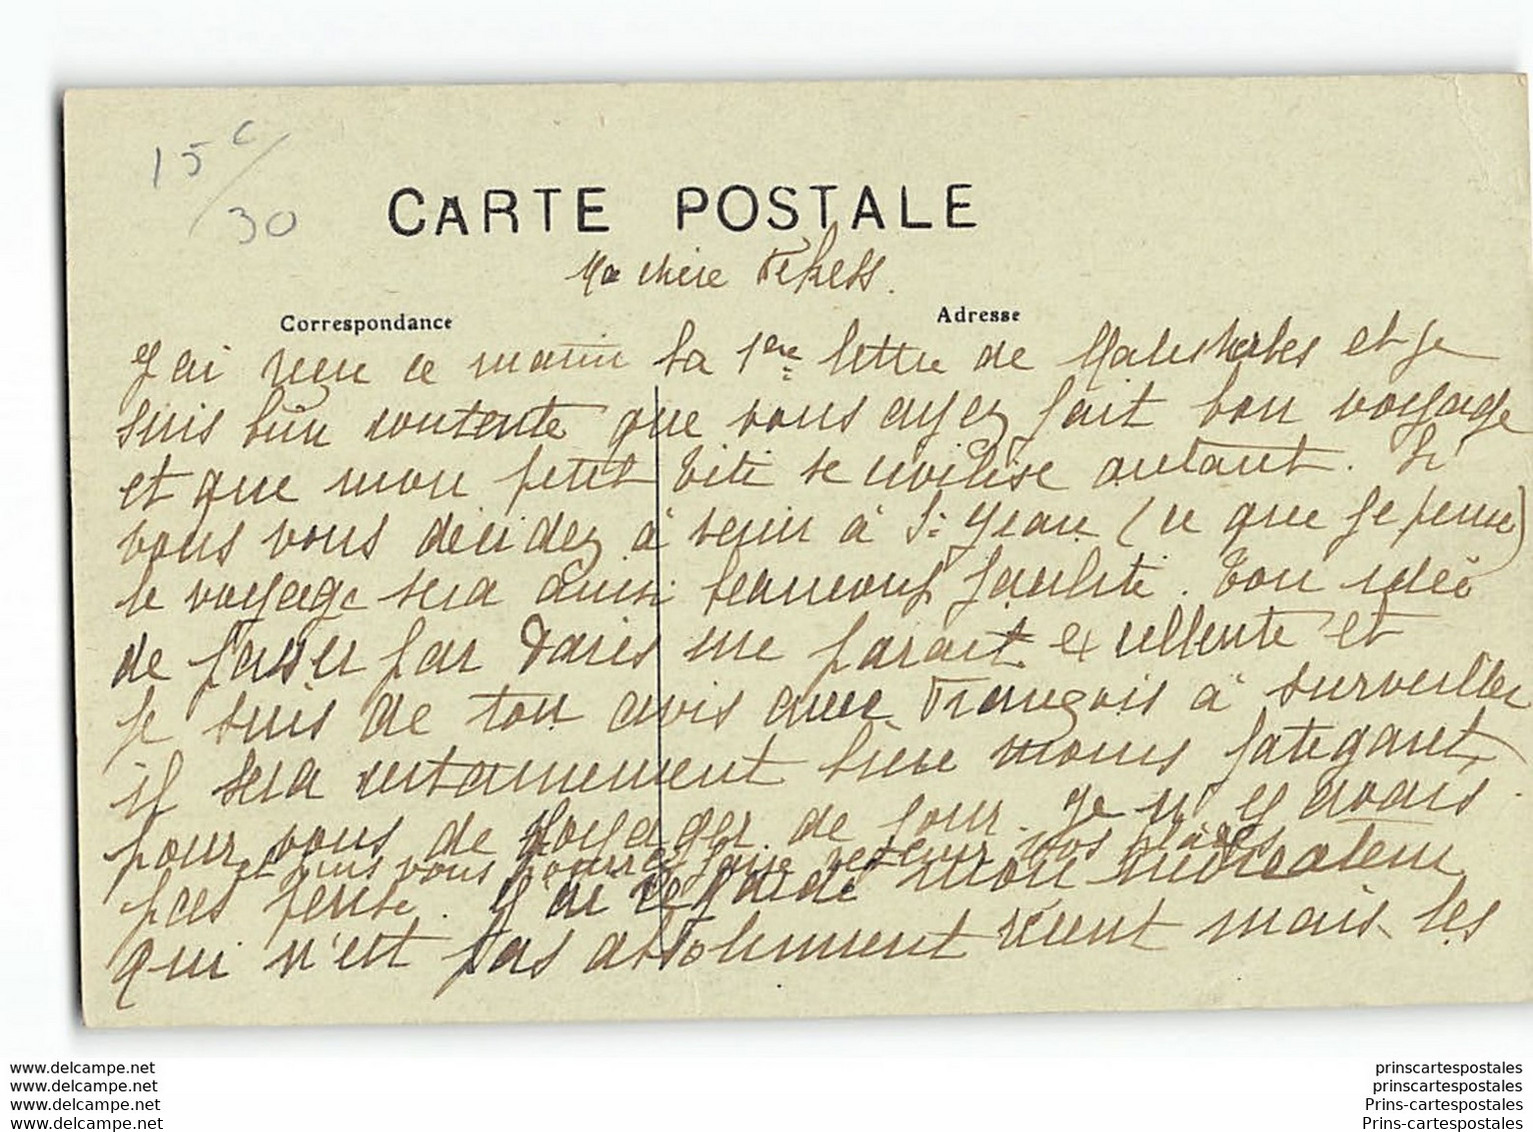 15 c/
30
CARTE POSTALE
Ma chère
Correspondance
Adresse
J'ai reçu ce matin ta 1ère lettre de Malesherbes et je
suis bien contente que vous ayez fait bon voyage
et que mon petit Titi se civilise autant. Si
vous vous décidez à venir à St Jean (ce que je pense)
le voyage sera ainsi beaucoup facilité. Ton idée
de passer par Paris me parait excellente et
je suis de ton avis avec François à surveiller
il sera certainement bien moins fatigant
pour vous de voyager de jour. Je n'y avais
et puis vous pourrez faire retenir vos places
pas pensé. J'ai regardé mon indicateur
qui n'est pas absolument récent mais les
www.delcampe.net
www.delcampe.net
www.delcampe.net
www.delcampe.net
prinscartespostales
prinscartespostales
Prins-cartespostales
Prins-cartespostales